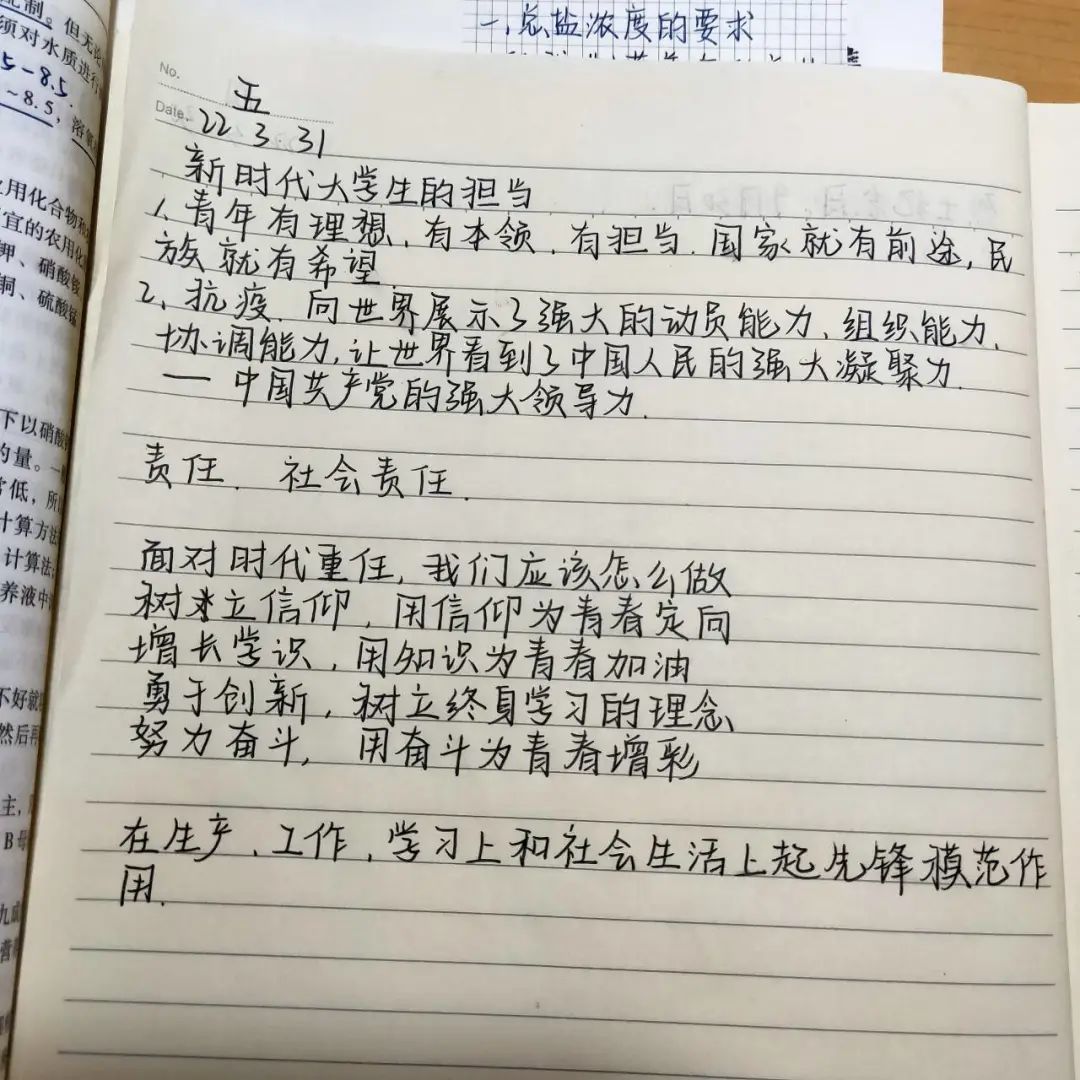 配制。但无论
须对水质进行
5-8.5.
~8.5，溶氧
用化合物和
宜的农用化
钾、硝酸铵
铜、硫酸锰
下以硝酸
的量。一般
常低，所
计算方法
计算法：
养液中
不好就
然后再
主，
B母
九成
营养
一，总盐浓度的要求
No.
五
Date. 22 3 31
新时代大学生的担当
1、青年有理想、有本领、有担当.国家就有前途，民
族就有希望.
2、抗疫.向世界展示了强大的动员能力、组织能力、
协调能力，让世界看到了中国人民的强大凝聚力.
— 中国共产党的强大领导力.
责任. 社会责任.
面对时代重任，我们应该怎么做
树立信仰，用信仰为青春定向
增长学识，用知识为青春加油
勇于创新，树立终身学习的理念
努力奋斗，用奋斗为青春增彩
在生产、工作、学习上和社会生活上起先锋模范作
用.